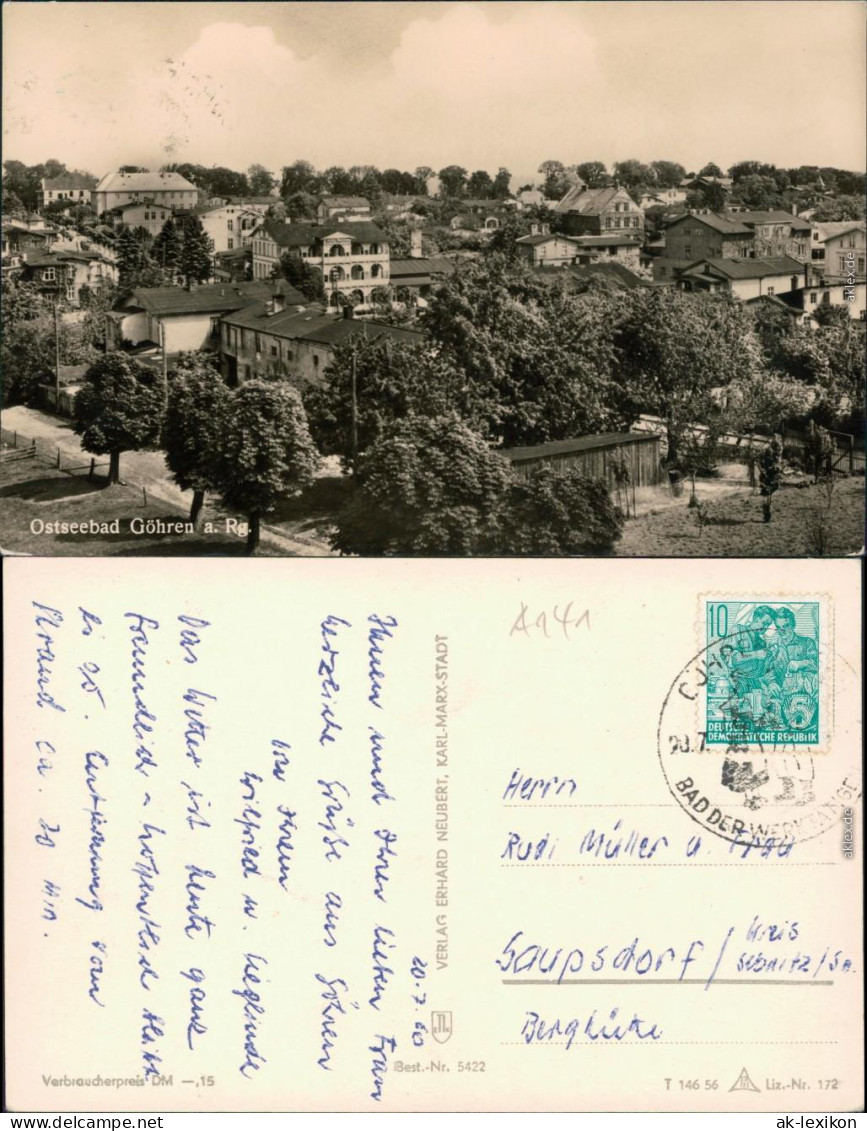 Ostseebad Göhren a. Rg.
A141
10
DEUTSCHE
DEMOKRATISCHE REPUBLIK
20.7.
BAD DER WERKTÄTIGE
Herrn
Rudi Müller u. Frau
Saupsdorf / Kreis
Sebnitz/Sa.
Berghütte
VERLAG ERHARD NEUBERT, KARL-MARX-STADT
20.7.60
Ihnen und Ihrer lieben Frau
herzliche Grüße aus Göhren
von Ihren
Wilfried u. Sieglinde
Das Wetter ist heute ganz
freundlich - hoffentlich bleibt
es so. Entfernung vom
Strand ca. 20 Min.
Verbraucherpreis DM —,15
Best.-Nr. 5422
T 146 56
Liz.-Nr. 172
akleix.de
www.ak-ansichtskarten.de
ak-lexikon